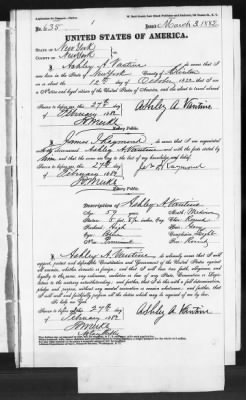 No. 635
Issued March 3, 1882
UNITED STATES OF AMERICA.
STATE OF New York
COUNTY OF New York
I, Ashley A. Vantine do swear that I was
born in the State of New York County of Clinton
on or about the 12th day of October 1822, that I am
a Native and loyal citizen of the United States, and about to travel abroad
Sworn to before me this 27th day
of February 1882
Ashley A. Vantine
Notary Public.
I, James T. Haymond do swear that I am acquainted
with Ashley A. Vantine and with the facts stated by
him and that the same are true to the best of my knowledge and belief.
Sworn to before me this 27th day
of February 1882
Notary Public.
Description of Ashley A. Vantine
Age 59 years
Mouth Medium
Stature 5 feet
Chin
Forehead High
Hair Gray
Eyes
Complexion
Nose Prominent
Face Round
I, Ashley A. Vantine do solemnly swear that I will
support, protect and defend the Constitution and Government of the United States against
all enemies, whether domestic or foreign; and that I will bear true faith, allegiance and
loyalty to the same, any ordinance, resolution or law of any State, Convention or Legis-
lature to the contrary notwithstanding; and further, that I do this with a full determination,
pledge and purpose, without any mental reservation or evasion whatsoever; and further, that
I will well and faithfully perform all the duties which may be required of me by law.
So help me God
Sworn to before me this 27th
day of February 1882
Ashley A. Vantine